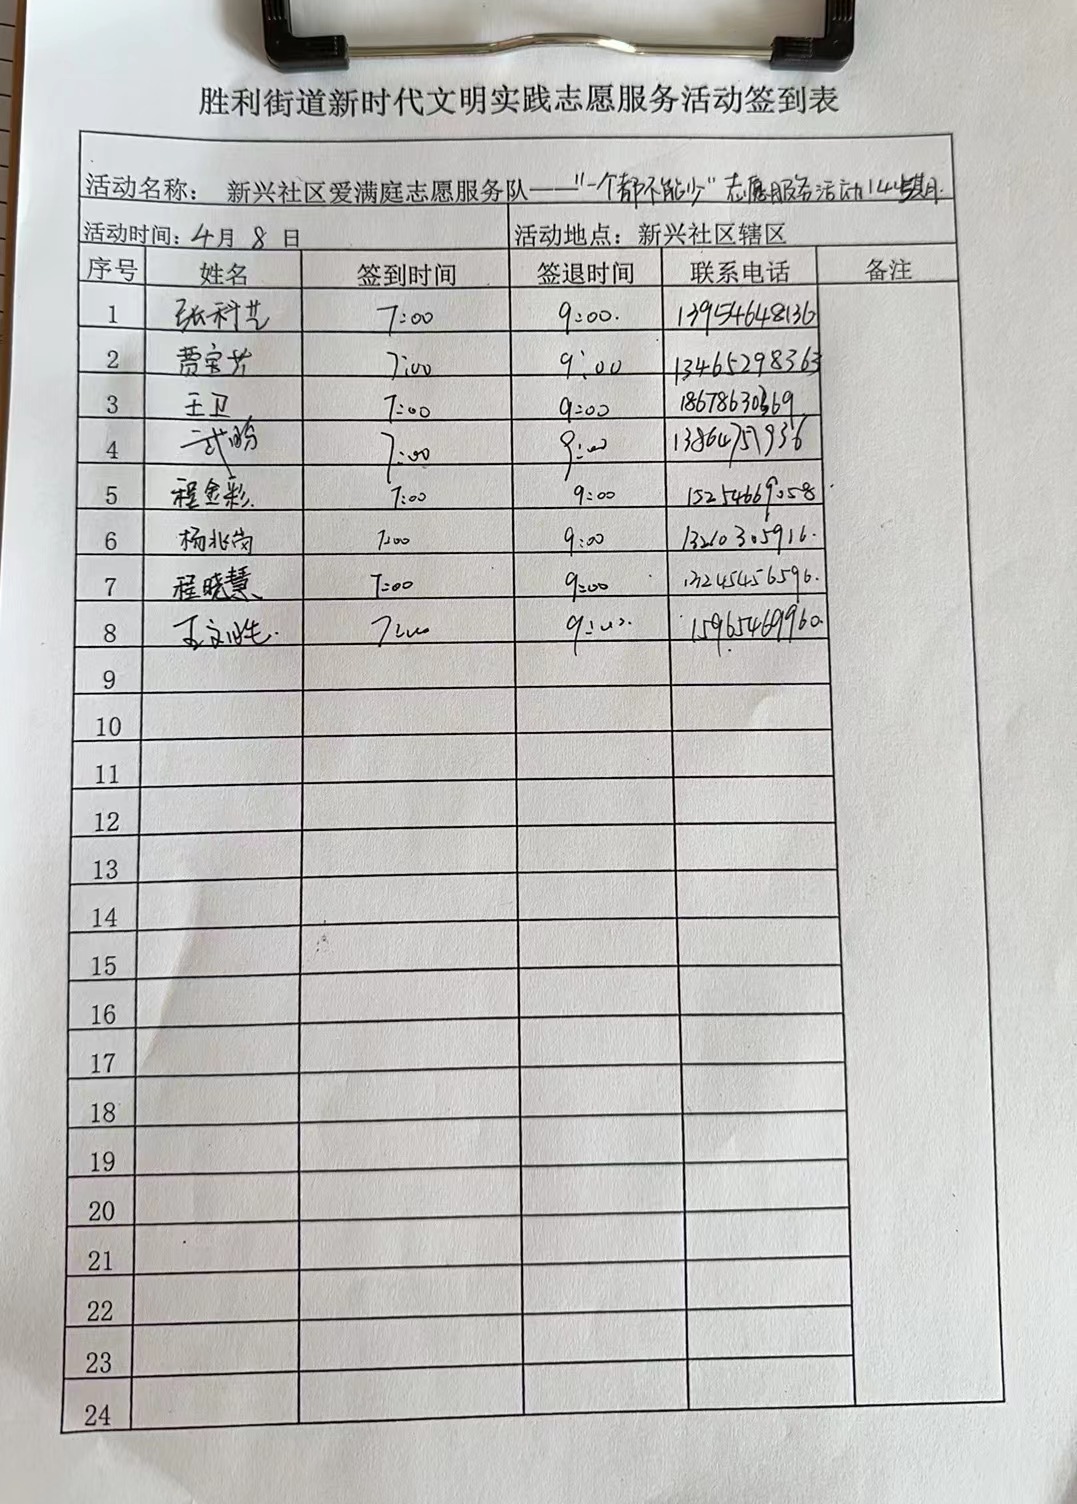 胜利街道新时代文明实践志愿服务活动签到表
活动名称： 新兴社区爱满庭志愿服务队——“一个都不能少”志愿服务活动144期
活动时间：4月 8 日 活动地点：新兴社区辖区
序号 姓名 签到时间 签退时间 联系电话 备注
1 张科芝 7:00 9:00. 13954648136
2 贾宝芳 7:00 9:00 13465298363
3 王卫 7:00 9:00 18678630369
4 7:00 9:00 13864757936
5 程金彩 7:00 9:00 15254669058
6 杨兆岗 7:00 9:00 13210305916.
7 程晓慧 7:00 9:00 13245456596.
8 7:00 9:00. 15965469960.
9
10
11
12
13
14
15
16
17
18
19
20
21
22
23
24